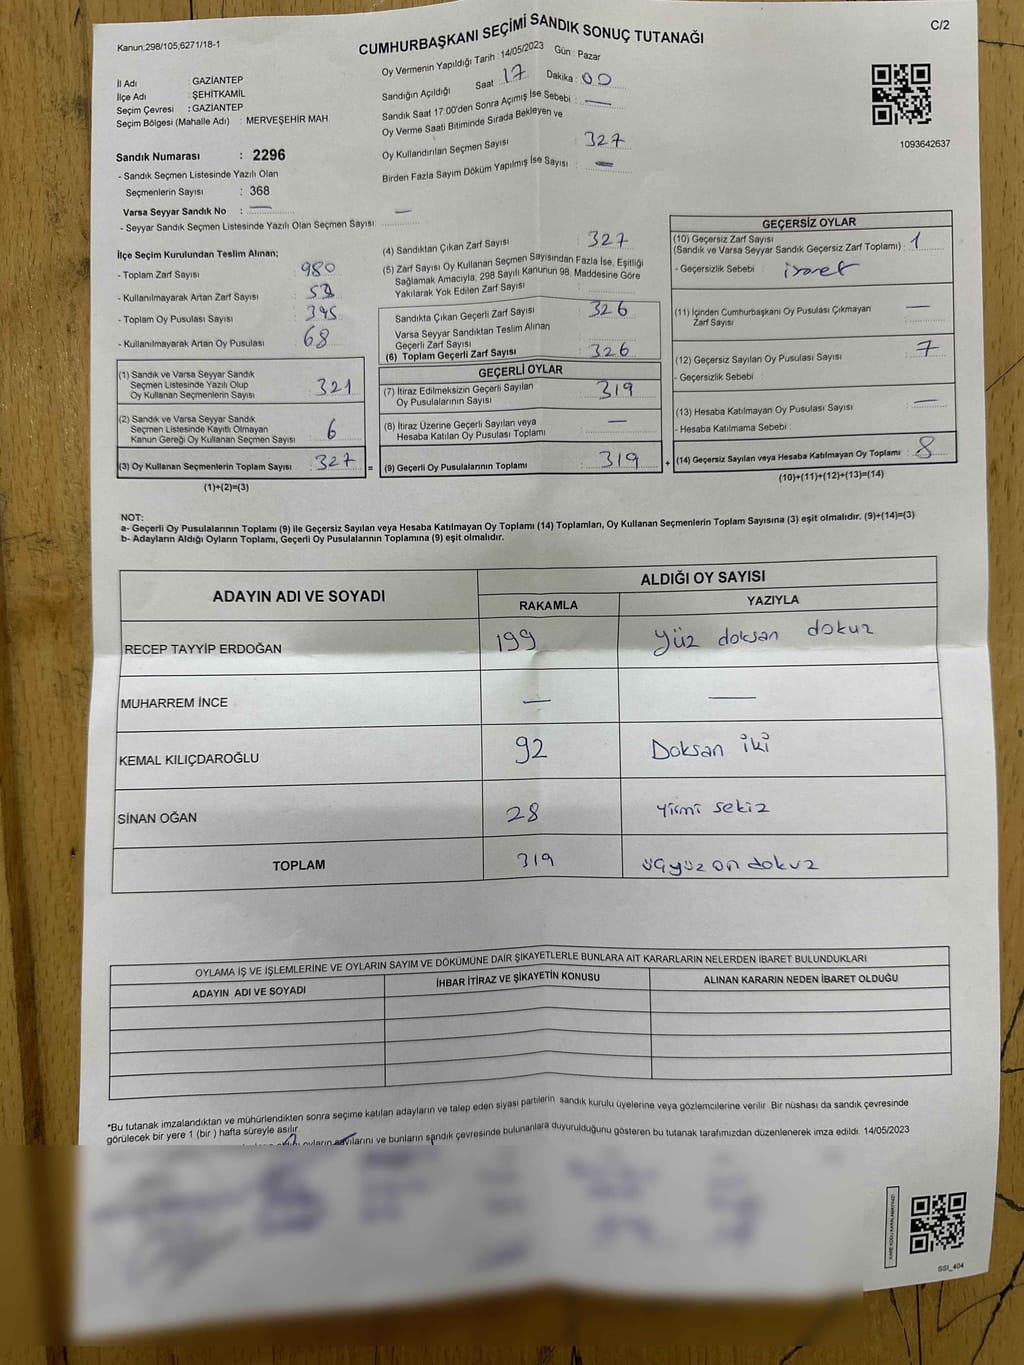 Kanun:298/105;6271/18-1
CUMHURBAŞKANI SEÇİMİ SANDIK SONUÇ TUTANAĞI
C/2
İl Adı : GAZİANTEP
İlçe Adı : ŞEHİTKAMİL
Seçim Çevresi : GAZİANTEP
Seçim Bölgesi (Mahalle Adı) : MERVEŞEHİR MAH
Sandık Numarası : 2296
- Sandık Seçmen Listesinde Yazılı Olan
Seçmenlerin Sayısı : 368
Varsa Seyyar Sandık No : —
- Seyyar Sandık Seçmen Listesinde Yazılı Olan Seçmen Sayısı: —
Oy Vermenin Yapıldığı Tarih : 14/05/2023 Gün : Pazar
Sandığın Açıldığı Saat : 17 Dakika : 00
Sandık Saat 17:00'den Sonra Açımış İse Sebebi : —
Oy Verme Saati Bitiminde Sırada Bekleyen ve
Oy Kullandırılan Seçmen Sayısı : 327
Birden Fazla Sayım Döküm Yapılmış İse Sayısı : —
1093642637
İlçe Seçim Kurulundan Teslim Alınan;
- Toplam Zarf Sayısı : 980
- Kullanılmayarak Artan Zarf Sayısı :
- Toplam Oy Pusulası Sayısı : 395
- Kullanılmayarak Artan Oy Pusulası : 68
(1) Sandık ve Varsa Seyyar Sandık
Seçmen Listesinde Yazılı Olup
Oy Kullanan Seçmenlerin Sayısı : 321
(2) Sandık ve Varsa Seyyar Sandık
Seçmen Listesinde Kayıtlı Olmayan
Kanun Gereği Oy Kullanan Seçmen Sayısı : 6
(3) Oy Kullanan Seçmenlerin Toplam Sayısı : 327 =
(1)+(2)=(3)
(4) Sandıktan Çıkan Zarf Sayısı : 327
(5) Zarf Sayısı Oy Kullanan Seçmen Sayısından Fazla İse, Eşitliği
Sağlamak Amacıyla, 298 Sayılı Kanunun 98. Maddesine Göre
Yakılarak Yok Edilen Zarf Sayısı :
Sandıkta Çıkan Geçerli Zarf Sayısı : 326
Varsa Seyyar Sandıktan Teslim Alınan
Geçerli Zarf Sayısı :
(6) Toplam Geçerli Zarf Sayısı : 326
GEÇERLİ OYLAR
(7) İtiraz Edilmeksizin Geçerli Sayılan
Oy Pusulalarının Sayısı : 319
(8) İtiraz Üzerine Geçerli Sayılan veya
Hesaba Katılan Oy Pusulası Toplamı : —
(9) Geçerli Oy Pusulalarının Toplamı : 319 +
GEÇERSİZ OYLAR
(10) Geçersiz Zarf Sayısı
(Sandık ve Varsa Seyyar Sandık Geçersiz Zarf Toplamı) : 1
- Geçersizlik Sebebi : işaret
(11) İçinden Cumhurbaşkanı Oy Pusulası Çıkmayan
Zarf Sayısı : —
(12) Geçersiz Sayılan Oy Pusulası Sayısı : 7
- Geçersizlik Sebebi :
(13) Hesaba Katılmayan Oy Pusulası Sayısı : —
- Hesaba Katılmama Sebebi :
(14) Geçersiz Sayılan veya Hesaba Katılmayan Oy Toplamı : 8
(10)+(11)+(12)+(13)=(14)
NOT:
a- Geçerli Oy Pusulalarının Toplamı (9) ile Geçersiz Sayılan veya Hesaba Katılmayan Oy Toplamı (14) Toplamları, Oy Kullanan Seçmenlerin Toplam Sayısına (3) eşit olmalıdır. (9)+(14)=(3)
b- Adayların Aldığı Oyların Toplamı, Geçerli Oy Pusulalarının Toplamına (9) eşit olmalıdır.
ADAYIN ADI VE SOYADI
ALDIĞI OY SAYISI
RAKAMLA YAZIYLA
RECEP TAYYİP ERDOĞAN 199 yüz doksan dokuz
MUHARREM İNCE — —
KEMAL KILIÇDAROĞLU 92 Doksan iki
SİNAN OĞAN 28 yirmi sekiz
TOPLAM 319 üçyüz on dokuz
OYLAMA İŞ VE İŞLEMLERİNE VE OYLARIN SAYIM VE DÖKÜMÜNE DAİR ŞİKAYETLERLE BUNLARA AİT KARARLARIN NELERDEN İBARET BULUNDUKLARI
ADAYIN ADI VE SOYADI İHBAR İTİRAZ VE ŞİKAYETİN KONUSU ALINAN KARARIN NEDEN İBARET OLDUĞU
*Bu tutanak imzalandıktan ve mühürlendikten sonra seçime katılan adayların ve talep eden siyasi partilerin sandık kurulu üyelerine veya gözlemcilerine verilir. Bir nüshası da sandık çevresinde
görülecek bir yere 1 (bir ) hafta süreyle asılır.
oyların sayılarını ve bunların sandık çevresinde bulunanlara duyurulduğunu gösteren bu tutanak tarafımızdan düzenlenerek imza edildi. 14/05/2023
SSİ_404